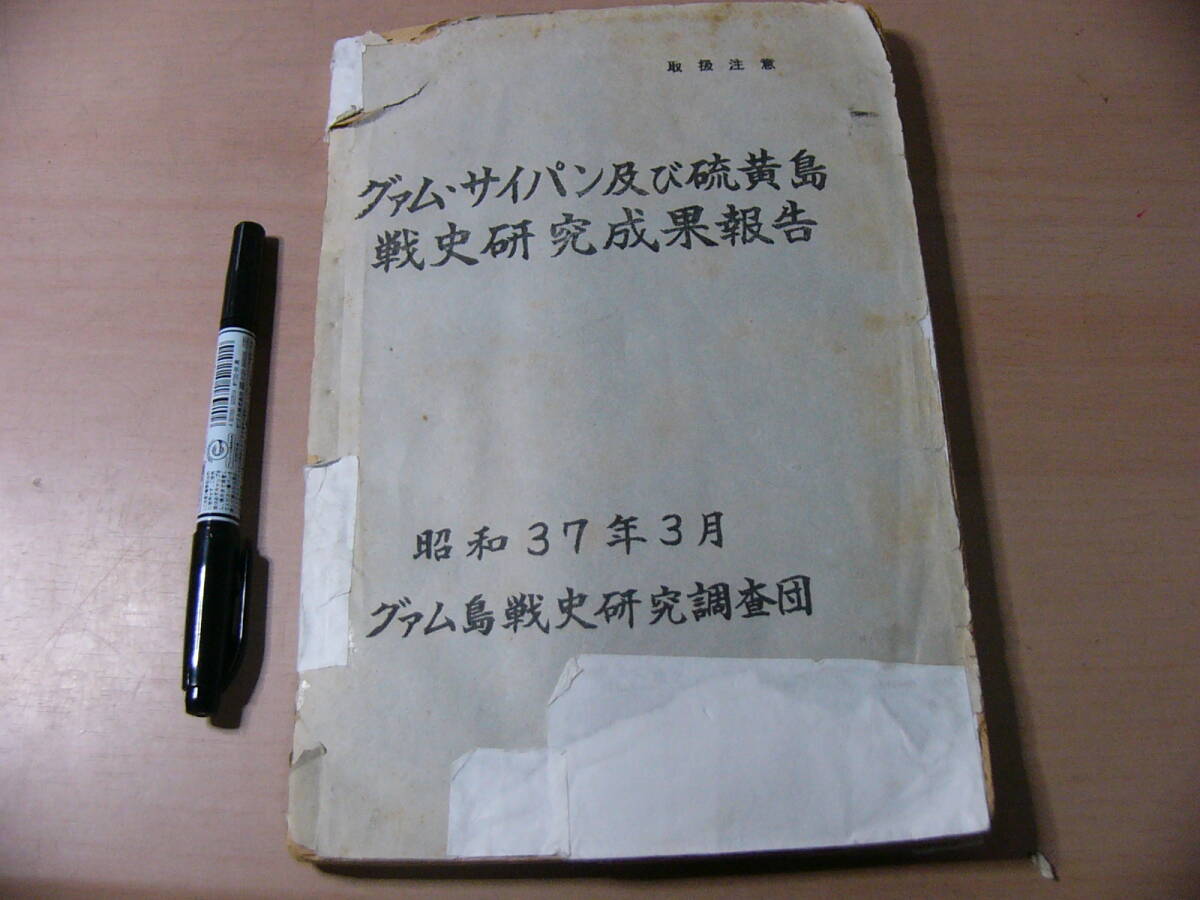 取扱注意
グァム・サイパン及び硫黄島
戦史研究成果報告
昭和37年3月
グァム島戦史研究調査団